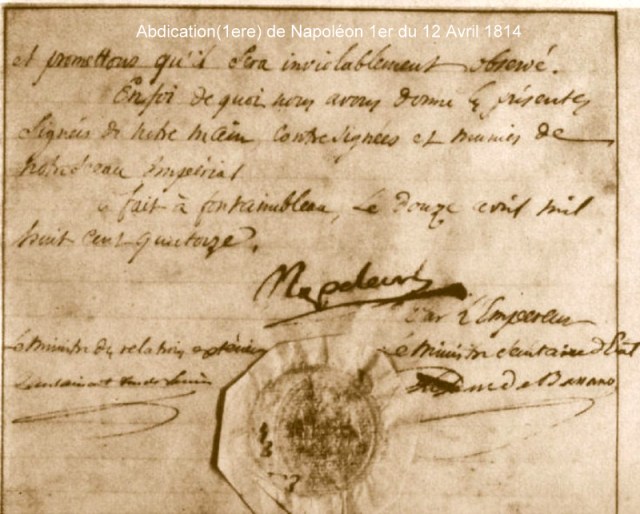 Abdication(1ere) de Napoléon 1er du 12 Avril 1814
et promettons qu'il sera inviolablement observé.
En foi de quoi nous avons donné les présentes
signées de notre main contresignées et munies de
notre sceau Impérial
fait à fontainebleau, le douze avril mil
huit cent quatorze.
Napoleon
Par l'Empereur
Le Ministre des relations extérieures
Le Ministre Secrétaire d'Etat
Duc de Bassano